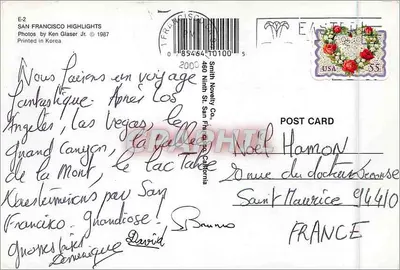 E-2
SAN FRANCISCO HIGHLIGHTS
Photos by Ken Glaser Jr. © 1987
Printed in Korea
Nous faisons un voyage
fantastique. Après Los
Angeles, Las Vegas, le
Grand Canyon, la vallée
de la Mort, le lac Tahoe
Nous terminons par San
Francisco. Grandiose.
Dominique David S. Bruno
0 85464 10100 5
Smith Novelty Co.,
460 Ninth St. San Francisco, California
SAN FRANCISCO
2000
EASTER
USA 55
POST CARD
Noël Hamon
rue du docteur
Saint Maurice 94410
FRANCE
GRAPHTIC